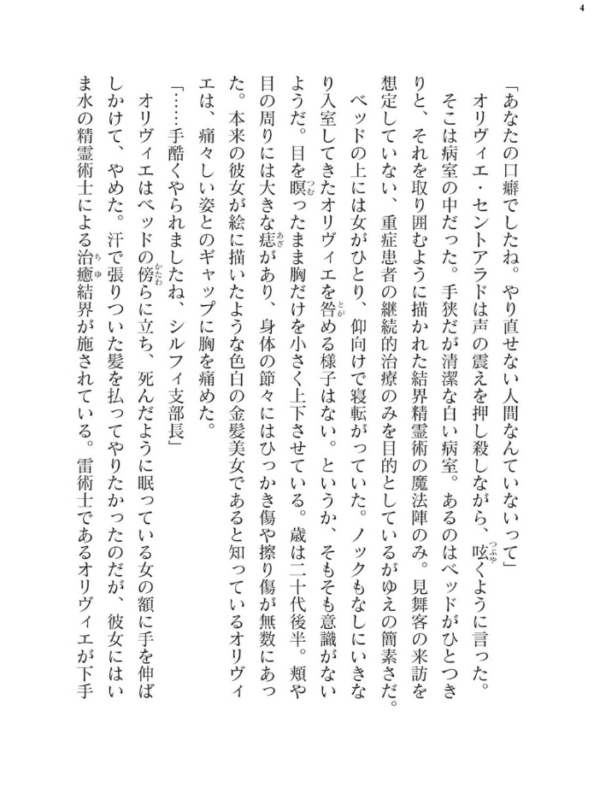 4
「あなたの口癖でしたね。やり直せない人間なんていないって」
オリヴィエ・セントアラドは声の震えを押し殺しながら、呟くように言った。
そこは病室の中だった。手狭だが清潔な白い病室。あるのはベッドがひとつき
りと、それを取り囲むように描かれた結界精霊術の魔法陣のみ。見舞客の来訪を
想定していない、重症患者の継続的治療のみを目的としているがゆえの簡素さだ。
ベッドの上には女がひとり、仰向けで寝転がっていた。ノックもなしにいきな
り入室してきたオリヴィエを咎める様子はない。というか、そもそも意識がない
ようだ。目を瞑ったまま胸だけを小さく上下させている。歳は二十代後半。頬や
目の周りには大きな痣があり、身体の節々にはひっかき傷や擦り傷が無数にあっ
た。本来の彼女が絵に描いたような色白の金髪美女であると知っているオリヴィ
エは、痛々しい姿とのギャップに胸を痛めた。
「……手酷くやられましたね、シルフィ支部長」
オリヴィエはベッドの傍らに立ち、死んだように眠っている女の額に手を伸ば
しかけて、やめた。汗で張りついた髪を払ってやりたかったのだが、彼女にはい
ま水の精霊術士による治癒結界が施されている。雷術士であるオリヴィエが下手